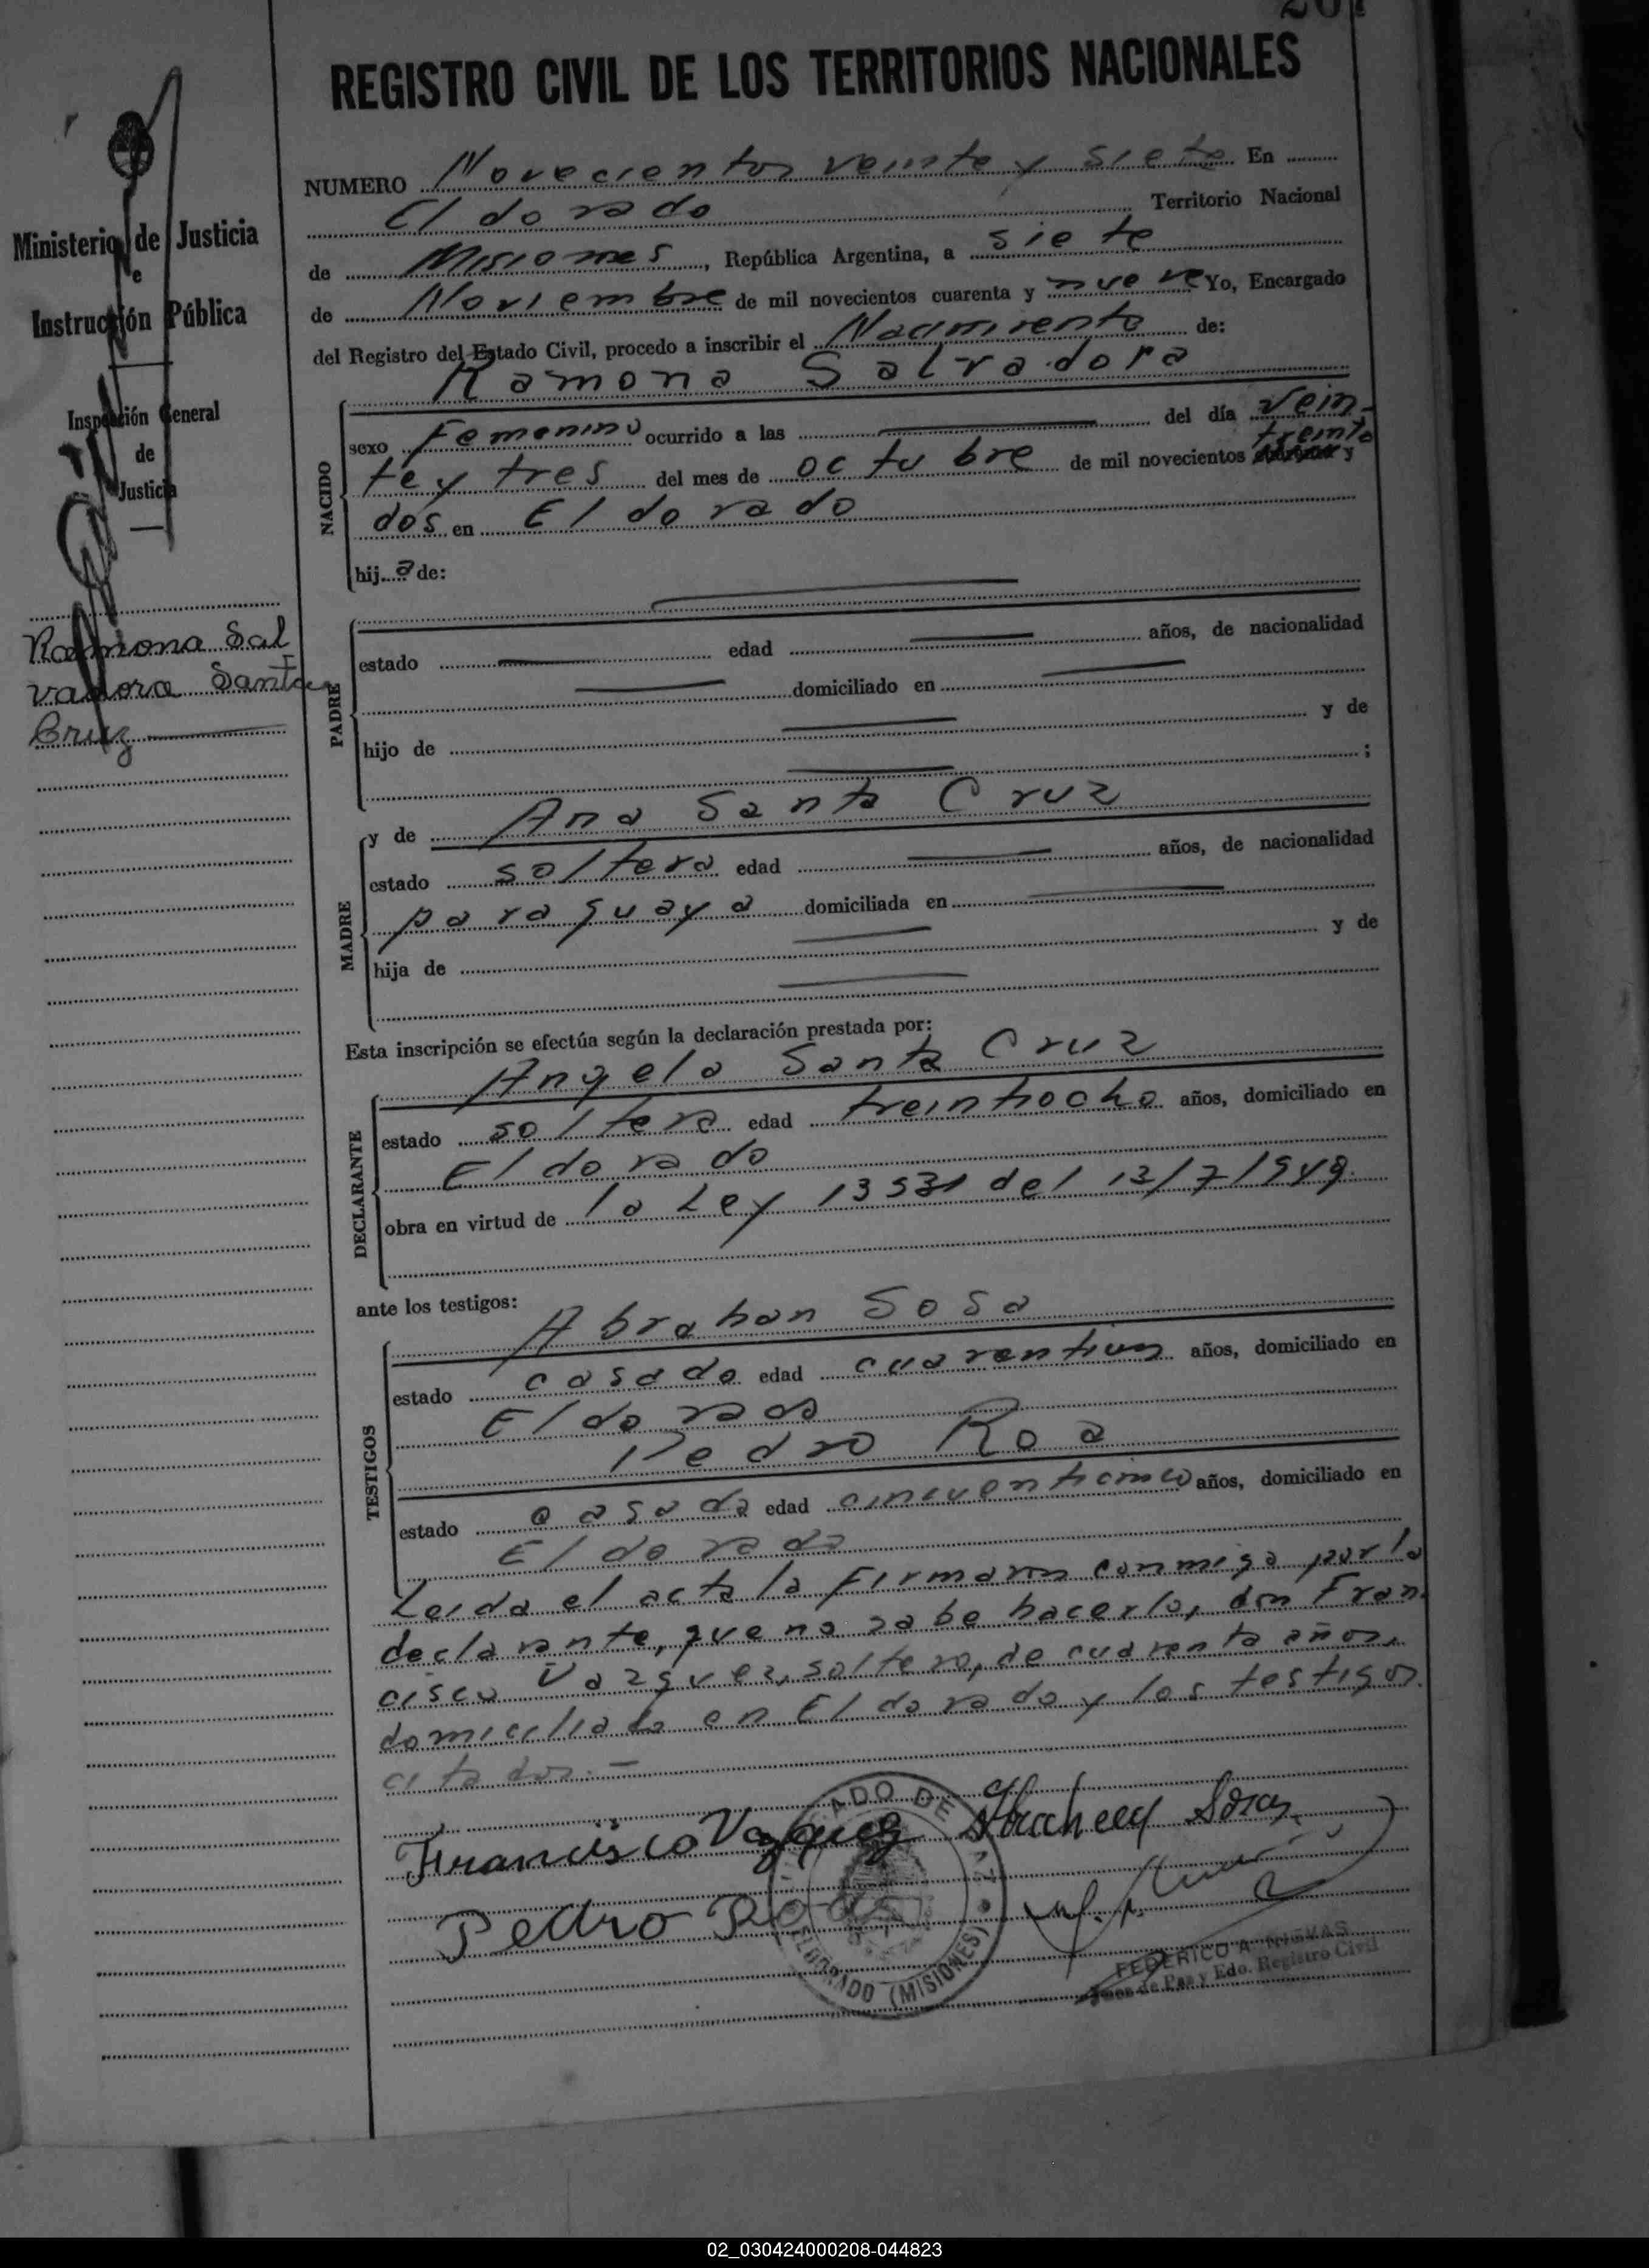 REGISTRO CIVIL DE LOS TERRITORIOS NACIONALES
Ministerio de Justicia
e
Instrucción Pública
Inspección General
de
Justicia
Ramona Sal
vadora Santa
Cruz
NUMERO Novecientos veinte y siete En
El dorado Territorio Nacional
de Misiones, República Argentina, a siete
de Noviembre de mil novecientos cuarenta y nueve Yo, Encargado
del Registro del Estado Civil, procedo a inscribir el Nacimiento de:
Ramona Salvadora
NACIDO
sexo Femenino ocurrido a las del día Vein-
te y tres del mes de octubre de mil novecientos treinta y
dos en El dorado
hij a de:
PADRE
estado edad años, de nacionalidad
domiciliado en
hijo de y de
;
MADRE
y de Ana Santa Cruz
estado soltera edad años, de nacionalidad
paraguaya domiciliada en
hija de y de
Esta inscripción se efectúa según la declaración prestada por:
Angela Santa Cruz
DECLARANTE
estado soltera edad treintiocho años, domiciliado en
El dorado
obra en virtud de la Ley 13531 del 13/7/949
ante los testigos:
Abrahan Sosa
TESTIGOS
estado casado edad cuarentiun años, domiciliado en
El dorado
Pedro Roa
estado casado edad cincuenticinco años, domiciliado en
El dorado
Leida el acta la firmaron conmigo por la
declarante, que no sabe hacerlo, don Fran
cisco Vazquez, soltero, de cuarenta años,
domiciliado en El dorado y los testigos
citados.-
Francisco Vazquez Sosa
Pedro Roa
ADO DE
ELDORADO (MISIONES)
FEDERICO A. NIEVAS
Juez de Paz y Edo. Registro Civil
02_030424000208-044823